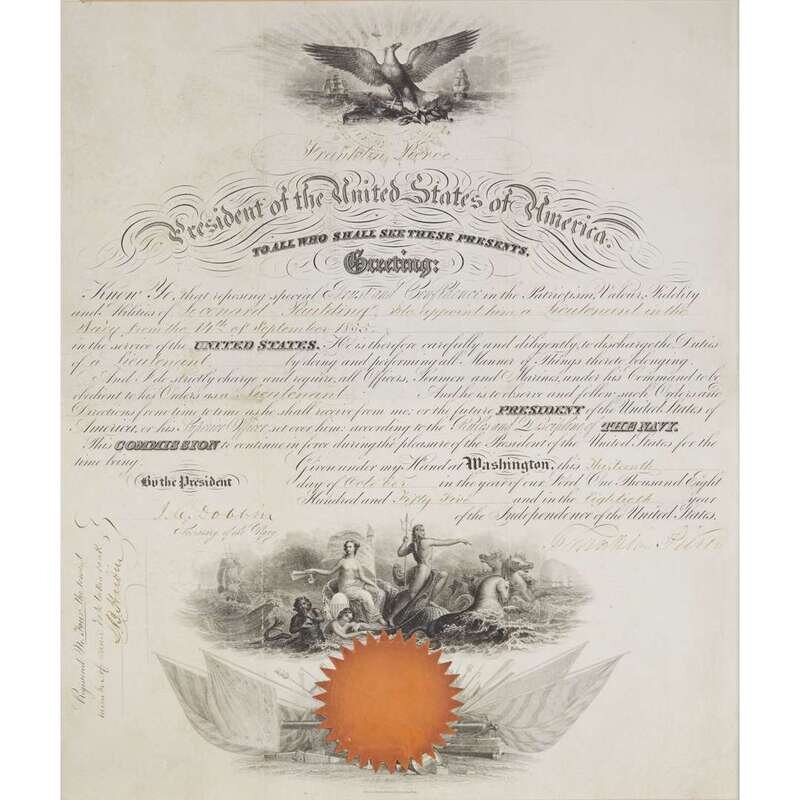 Franklin Pierce
President of the United States of America.
TO ALL WHO SHALL SEE THESE PRESENTS,
Greeting:
Know Ye, that reposing special Trust and Confidence in the Patriotism, Valour, Fidelity
and Abilities of Leonard Paulding, I do appoint him a Lieutenant in the
Navy from the 14th of September 1855.
in the service of the UNITED STATES. He is therefore carefully and diligently, to discharge the Duties
of a Lieutenant by doing and performing all Manner of Things thereto belonging.
And I do strictly charge and require, all Officers, Seamen and Marines, under his Command to be
obedient to his Orders as a Lieutenant. And he is to observe and follow such Orders and
Directions from time to time as he shall receive from me; or the future PRESIDENT of the United States of
America, or his Superior Officer set over him: according to the Rules and Discipline of THE NAVY.
This COMMISSION to continue in force during the pleasure of the President of the United States for the
time being.
Given under my Hand at Washington, this Thirteenth
By the President
day of October in the year of our Lord One Thousand Eight
Hundred and Fifty Five and in the Eightieth year
of the Independence of the United States.
J. C. Dobbin
Secretary of the Navy
Franklin Pierce